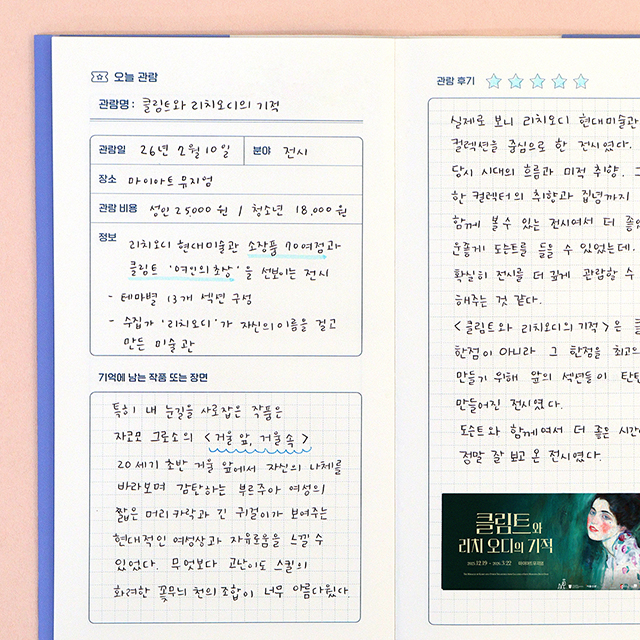 오늘 관람
관람명 : 클림트와 리치오디의 기적
관람일 26년 2월 10일 분야 전시
장소 마이아트뮤지엄
관람 비용 성인 25,000원 / 청소년 18,000원
정보 리치오디 현대미술관 소장품 70여점과
클림트 '여인의 초상'을 선보이는 전시
- 테마별 13개 섹션 구성
- 수집가 '리치오디'가 자신의 이름을 걸고
만든 미술관
기억에 남는 작품 또는 장면
특히 내 눈길을 사로잡은 작품은
자코모 그로소의 <거울 앞, 거울 속>
20세기 초반 거울 앞에서 자신의 나체를
바라보며 감탄하는 부르주아 여성의
짧은 머리카락과 긴 귀걸이가 보여주는
현대적인 여성상과 자유로움을 느낄 수
있었다. 무엇보다 고난이도 스킬의
화려한 꽃무늬 천의 조합이 너무 아름다웠다.
관람 후기
실제로 보니 리치오디 현대미술관
컬렉션을 중심으로 한 전시였다.
당시 시대의 흐름과 미적 취향,
한 컬렉터의 취향과 집념까지
함께 볼 수 있는 전시여서 더
운좋게 도슨트를 들을 수 있었는데.
확실히 전시를 더 깊게 관람할 수
해주는 것 같다.
<클림트와 리치오디의 기적>은
한점이 아니라 그 한점을 최고의
만들기 위해 앞의 섹션들이
만들어진 전시였다.
도슨트와 함께여서 더 좋은 시간
정말 잘 보고 온 전시였다.
클림트와
리치 오디의 기적
2025.12.19 - 2026.3.22 마이아트뮤지엄